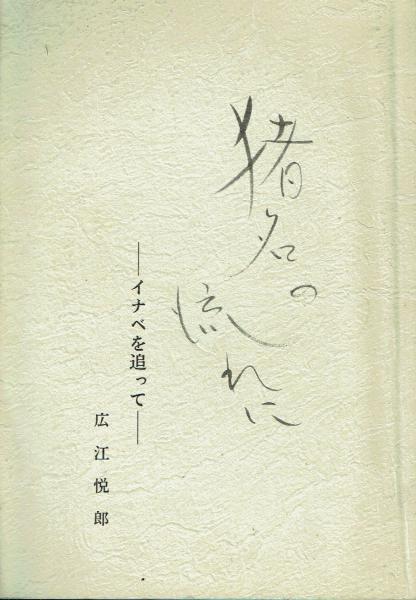 猪名の
流れに
――イナベを追って――
広江悦郎